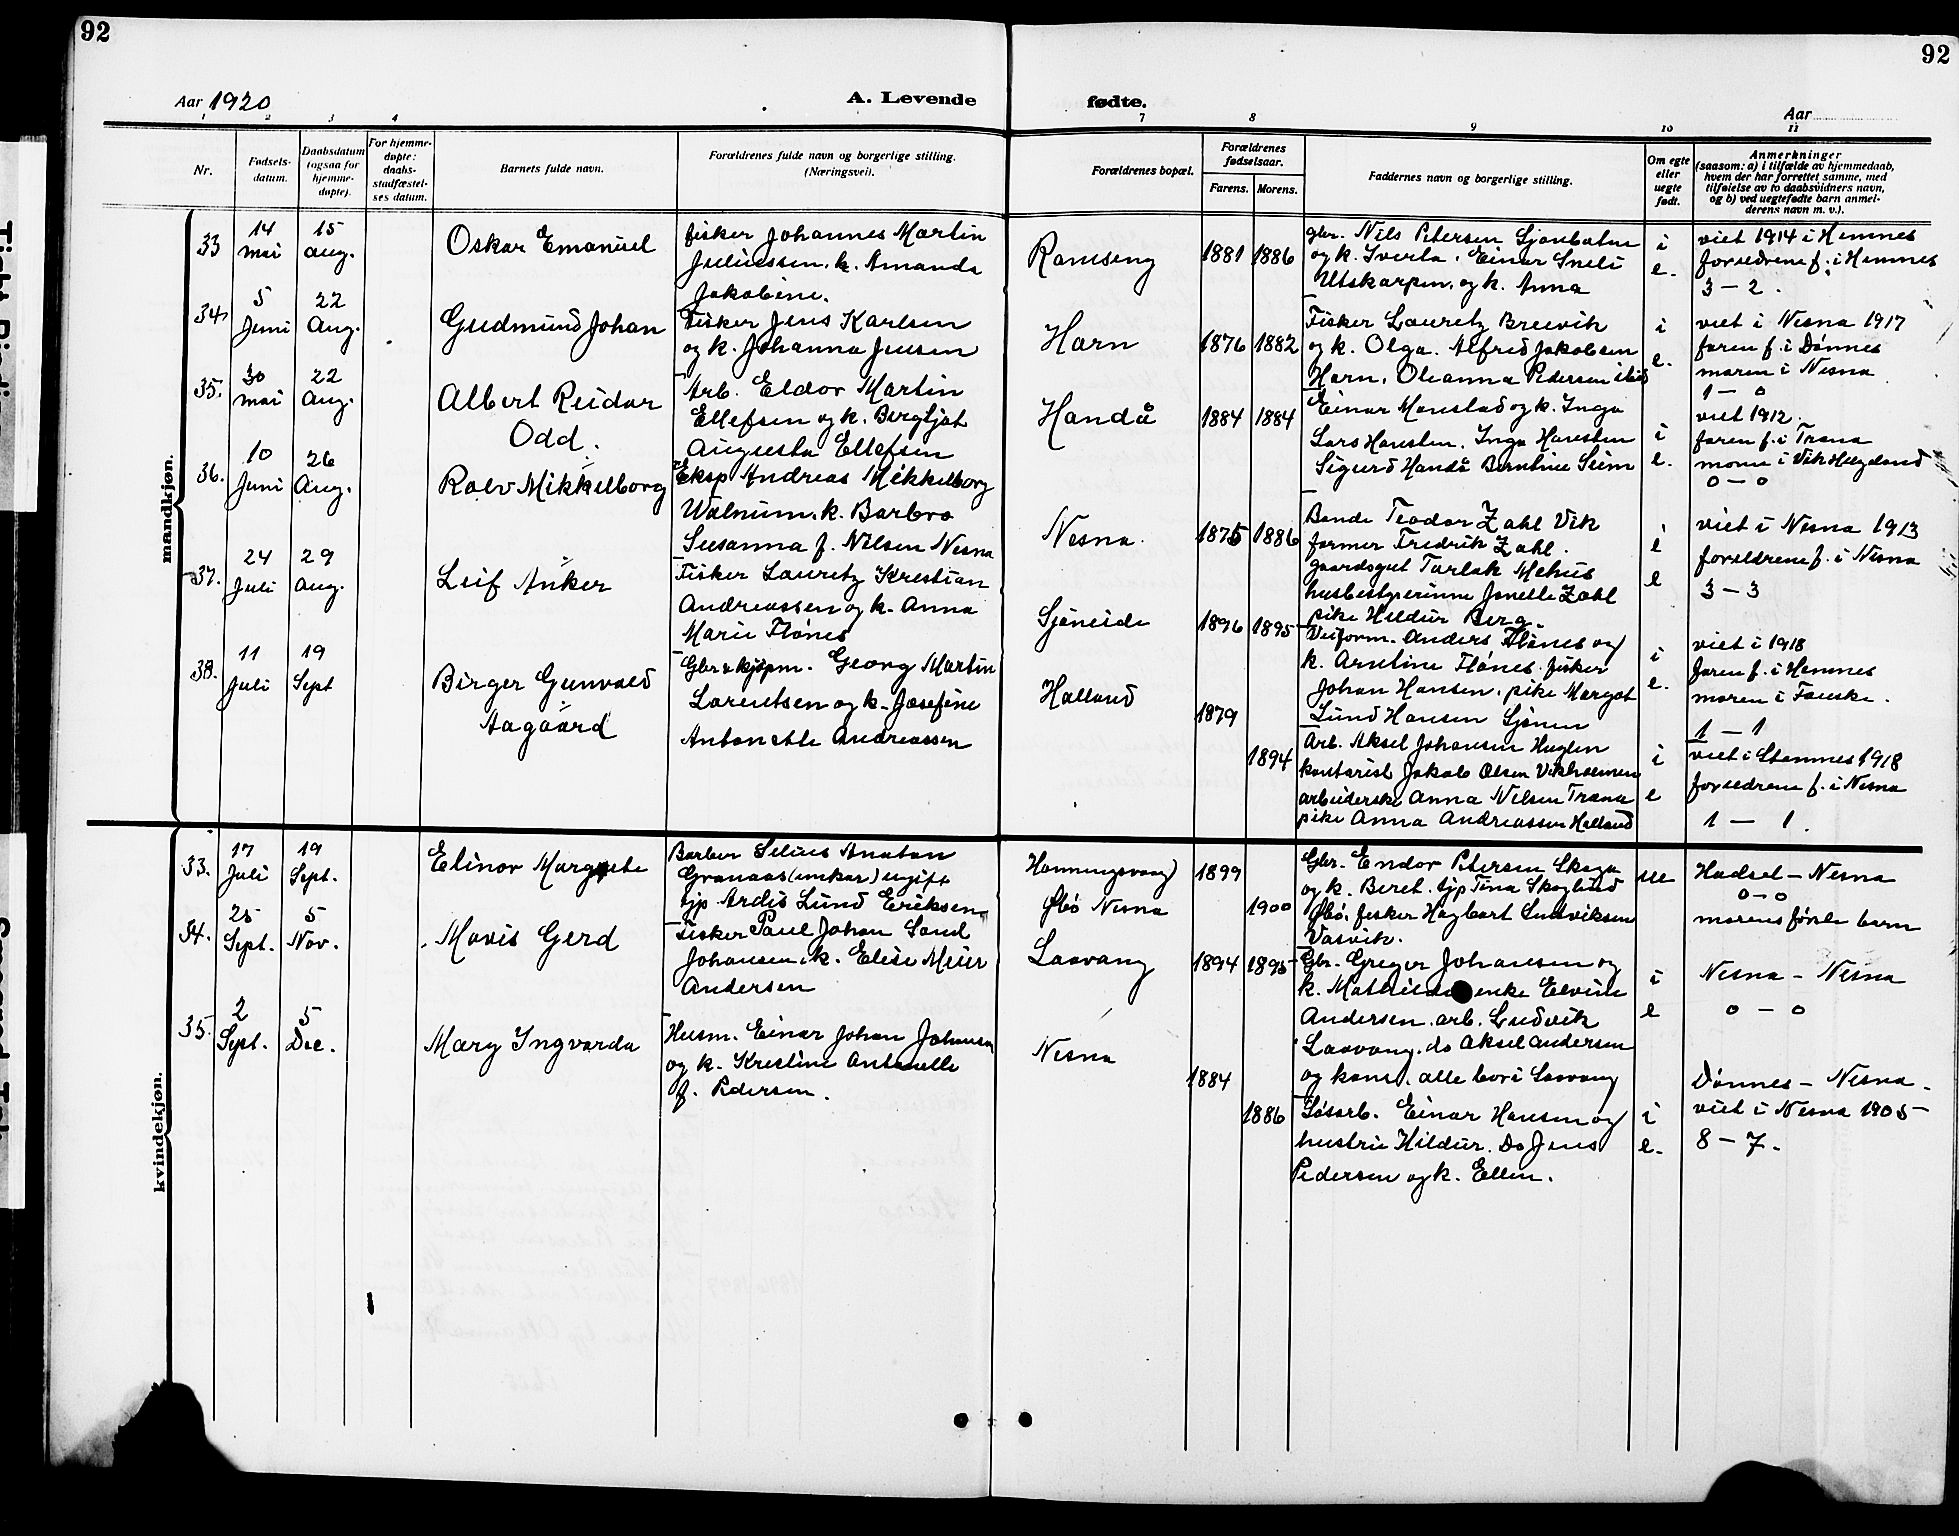 92
92
Aar 1920
A. Levende
fødte.
Aar
1 2 3 4 7 8 9 10 11
Nr.
Fødsels-
datum.
Daabsdatum
(ogsaa for
hjemme-
døpte).
For hjemme-
døpte:
daabs-
stadfæstel-
ses datum.
Barnets fulde navn.
Forældrenes fulde navn og borgerlige stilling.
(Næringsvei).
Forældrenes bopæl.
Forældrenes
fødselsaar.
Farens. Morens.
Faddernes navn og borgerlige stilling.
Om egte
eller
uegte
født.
Anmerkninger
(saasom: a) i tilfælde av hjemmedaab,
hvem der har forrettet samme, med
tilføielse av to daabsvidners navn,
og b) ved uegtefødte barn anmel-
derens navn m. v.).
mandkjøn.
33
14
mai
15
aug.
Oskar Emanuel
fisker Johannes Martin
Juliussen, k. Amanda
Jakobine.
Ramseng
1881 1886
gbr. Nils Petersen Sjonbotn
og k. Sverla. Einar Sneli
Utskarpen, og k. Anna
i
e.
viet 1914 i Hemnes
forældrene f. i Hemnes
3 - 2.
34
5
Juni
22
Aug.
Gudmund Johan
Fisker Jens Karlsen
og k. Johanna Jensen
Horn
1876 1882
Fisker Lauretz Breivik
og k. Olga. Alfred Jakobsen
Horn. Oleanna Pedersen ibid
i
e.
viet i Nesna 1917
faren f. i Dønnes
moren i Nesna
1 - 0
35.
30
mai
22
Aug.
Albert Reidar
Odd.
Arb. Eldor Martin
Ellefsen og k. Bergljot
Augusta Ellefsen
Handå
1884 1884
Einar Monstad og k. Inga
Lars Hansten. Inga Hansten
Sigurd Handå Berntine Seim
i
e.
viet 1912.
faren f. i Træna
moren i Vik Helgeland
0 - 0
36.
10
Juni
26
Aug.
Rolv Mikkelborg
Eksp Andreas Mikkelborg
Walnum, k. Barbro
Susanna f. Nilsen Nesna
Nesna
1875 1886
Bonde Teodor Zahl Vik
farmer Fredrik Zahl.
gaardsgut Torlak Mehus
husbestyrerinne Jonelle Zahl
pike Hildur Berg.
i
e
viet i Nesna 1913
foreldrene f. i Nesna
3 - 3
37.
24
Juli
29
Aug.
Leif Anker
Fisker Lauretz Kristian
Andreassen og k. Anna
Marie Flønes
Sjøneide
1896 1895
Veiform. Anders Flønes og
k. Arntine Flønes. fisker
Johan Hansen, pike Margot
Lund Hansen Sjonen
e
i
e.
viet i 1918
faren f. i Hemnes
moren i Fauske.
1 - 1
38.
11
Juli
19
Sept
Birger Gunvald
Aagaard
Gbr & kjøpm. Georg Martin
Lorentsen og k. Josefine
Antonette Andreassen
Halland
1879
1894
Arb. Aksel Johansen Huglen
kontorist Jakob Olsen Vikholmen
arbeiderske Anna Nilsen Træna
pike Anna Andreassen Halland
i
e
viet i Stamnes 1918
foreldrene f. i Nesna
1 - 1.
kvindekjøn.
33.
17
Juli
19
Sept.
Elinor Margrete
Barber Selius Anaton
Granaas (enkar) ugift
tjp Ardis Lund Eriksen
Honningsvaag
Øbø Nesna
1899
1900
Gbr. Endor Petersen Skoga
og k. Beret. tjp Tina Skoglund
Øbø, fisker Hagbart Ludviksen
Vasvik.
ue
Hadsel - Nesna
0 - 0
morens første barn
34.
25
Sept.
5
Nov.
Mavis Gerd
Fisker Paul Johan Sand
Johansen, k. Elise Meier
Andersen
Laavong
1894 1895
Gbr. Greger Johansen og
k. Mathilde enke Elvide
Andersen, arb. Ludvik
Laavong. do Aksel Andersen
og kone, alle bor i Laavong
i
e
Nesna - Nesna
0 - 0
35.
2
Sept.
5
Dec.
Mary Ingvarda
Husm. Einar Johan Johansen
og k. Kristine Antonelle
f. Pedersen.
Nesna
1884
1886
Løsarb. Einar Hansen og
hustru Hildur. Do Jens
Pedersen og k. Ellen.
i
e.
Dønnes - Nesna.
viet i Nesna 1905 -
8 - 7.